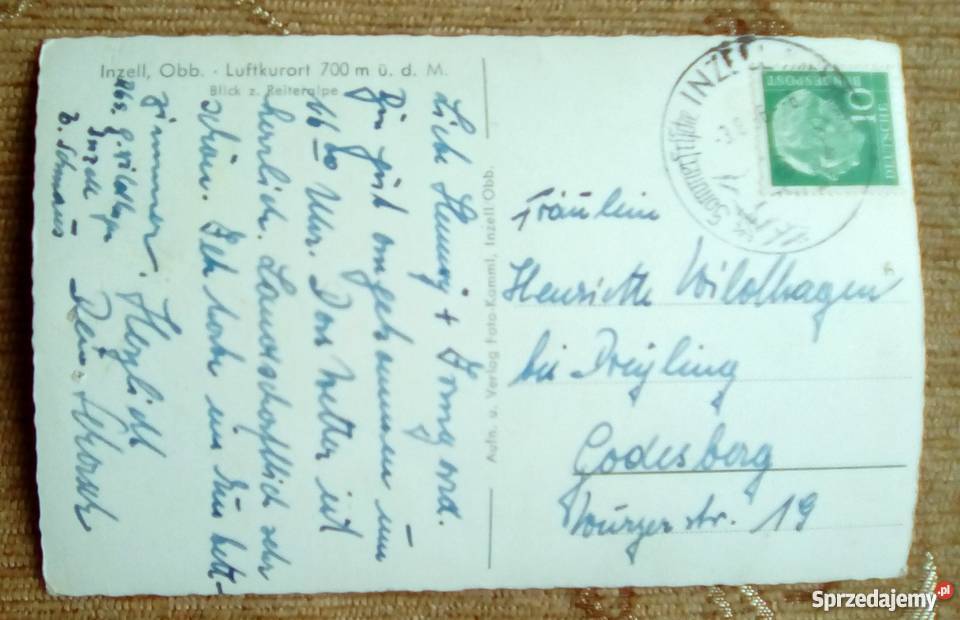 Inzell, Obb. · Luftkurort 700 m ü. d. M.
Blick z. Reiteralpe
Liebe Henny +
Bin gut angekommen um
16 00 Uhr. Das Wetter ist
herrlich. Landschaftlich sehr
schön. Ich
zimmer. Herzlichst
Dein
Abs. G. Wildhagen
Inzell
b. Schmaus
Aufn. u. Verlag Foto-Kamml, Inzell Obb.
Sommerfrische INZELL
10
DEUTSCHE
BUNDESPOST
Fräulein
Henriette Wildhagen
bei Dreyling
Godesberg
Wurzerstr. 19
Sprzedajemy.pl